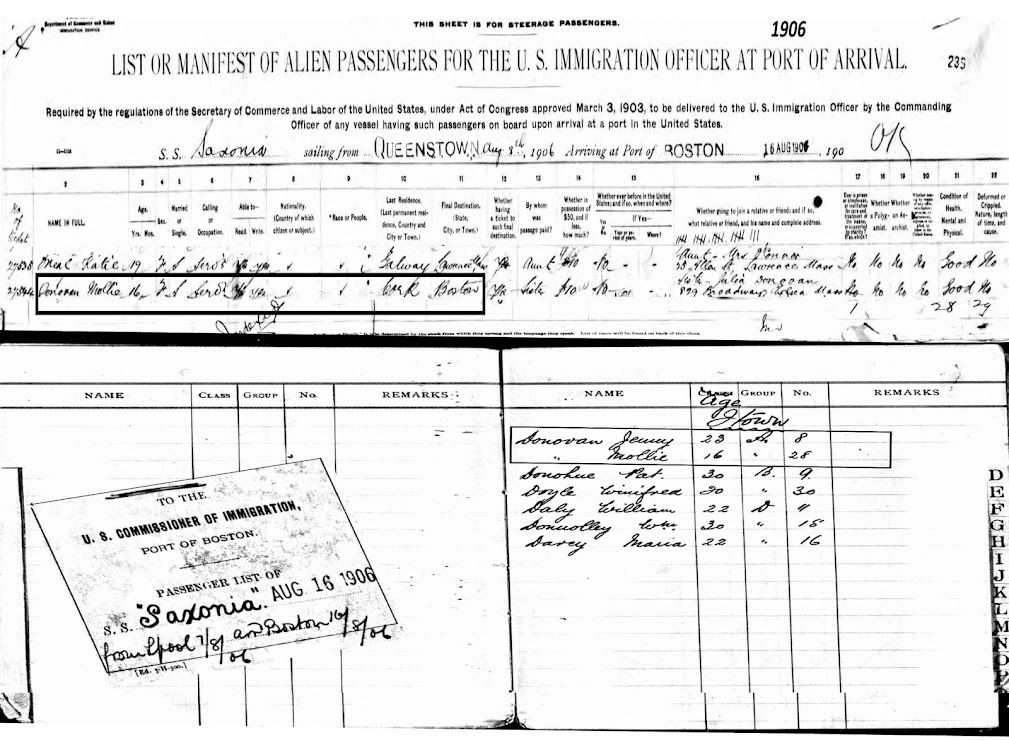 Department of Commerce and Labor
IMMIGRATION SERVICE
THIS SHEET IS FOR STEERAGE PASSENGERS.
1906
A
LIST OR MANIFEST OF ALIEN PASSENGERS FOR THE U. S. IMMIGRATION OFFICER AT PORT OF ARRIVAL.
235
Required by the regulations of the Secretary of Commerce and Labor of the United States, under Act of Congress approved March 3, 1903, to be delivered to the U. S. Immigration Officer by the Commanding
Officer of any vessel having such passengers on board upon arrival at a port in the United States.
S. S. Saxonia sailing from QUEENSTOWN, Aug 8th, 1906 Arriving at Port of BOSTON 16 AUG 1906, 190
OK
2 3 4 5 6 7 8 9 10 11 12 13 14 15 16 17 18 19 20 21 22
No. on List
NAME IN FULL.
Age.
Yrs. Mos.
Sex.
Married or Single.
Calling or Occupation.
Able to—
Read. Write.
Nationality.
(Country of which citizen or subject.)
*Race or People.
Last Residence.
(Last permanent residence, Country and City or Town.)
Final Destination.
(State, City, or Town.)
Whether having a ticket to such final destination.
By whom was passage paid?
Whether in possession of $50, and if less, how much?
Whether ever before in the United States; and if so, when and where?
Yes or No.
If Yes—
Year or period of years.
Where?
Whether going to join a relative or friend; and if so, what relative or friend, and his name and complete address.
Whether a Polygamist.
Whether an Anarchist.
Condition of Health, Mental and Physical.
Deformed or Crippled. Nature, length of time, and cause.
Katie 19 F S Servt Yes yes Galway Lawrence Mass Yes Aunt $10 No - - Aunt - Mrs O'Connor
Lawrence Mass No No No No Good No
Donovan Mollie 16 F S Servt Yes yes Cork Boston Yes Sister $10 No - - Sister Julia Donovan
879 Broadway Chelsea Mass No No No No Good No
1 28 29
NAME CLASS GROUP No. REMARKS
NAME CLASS GROUP No. REMARKS
Age
Qtown
Donovan Jenny 23 A 8
" Mollie 16 " 28
Donohue Pat. 30 B. 9
Doyle Winifred 20 " 30
Daly William 22 D "
Donnolley Wm. 30 " 15
Darcy Maria 22 " 16
D
E
F
G
H
I
J
K
L
M
N
O
P
TO THE
U. S. COMMISSIONER OF IMMIGRATION,
PORT OF BOSTON.
PASSENGER LIST OF
S. S. "Saxonia". AUG 16 1906
from Lpool 7/8/06 arr Boston 16/8/06
[Ed. 3-H-300.]